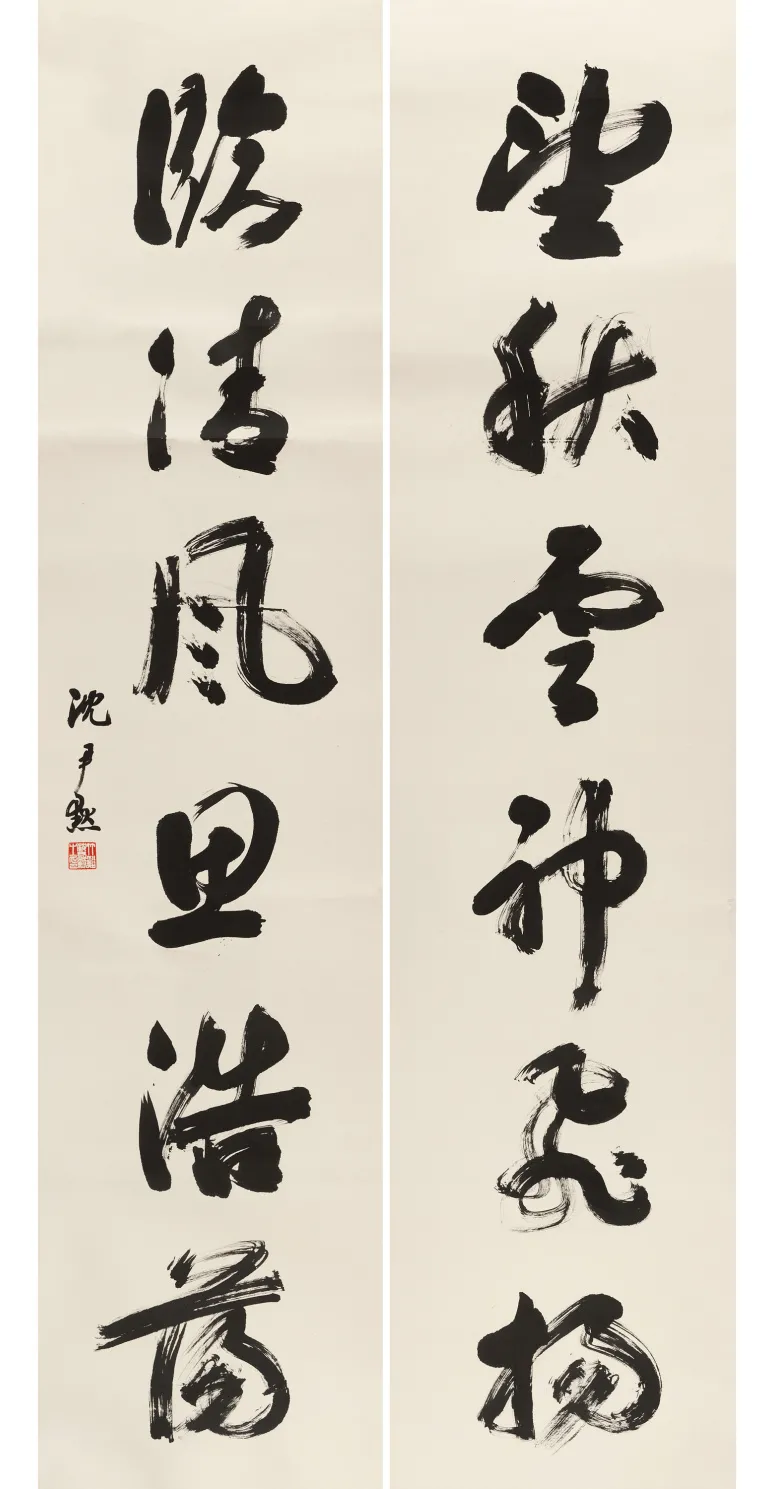 望秋雲神飛揚
臨清風思浩蕩
沈尹默